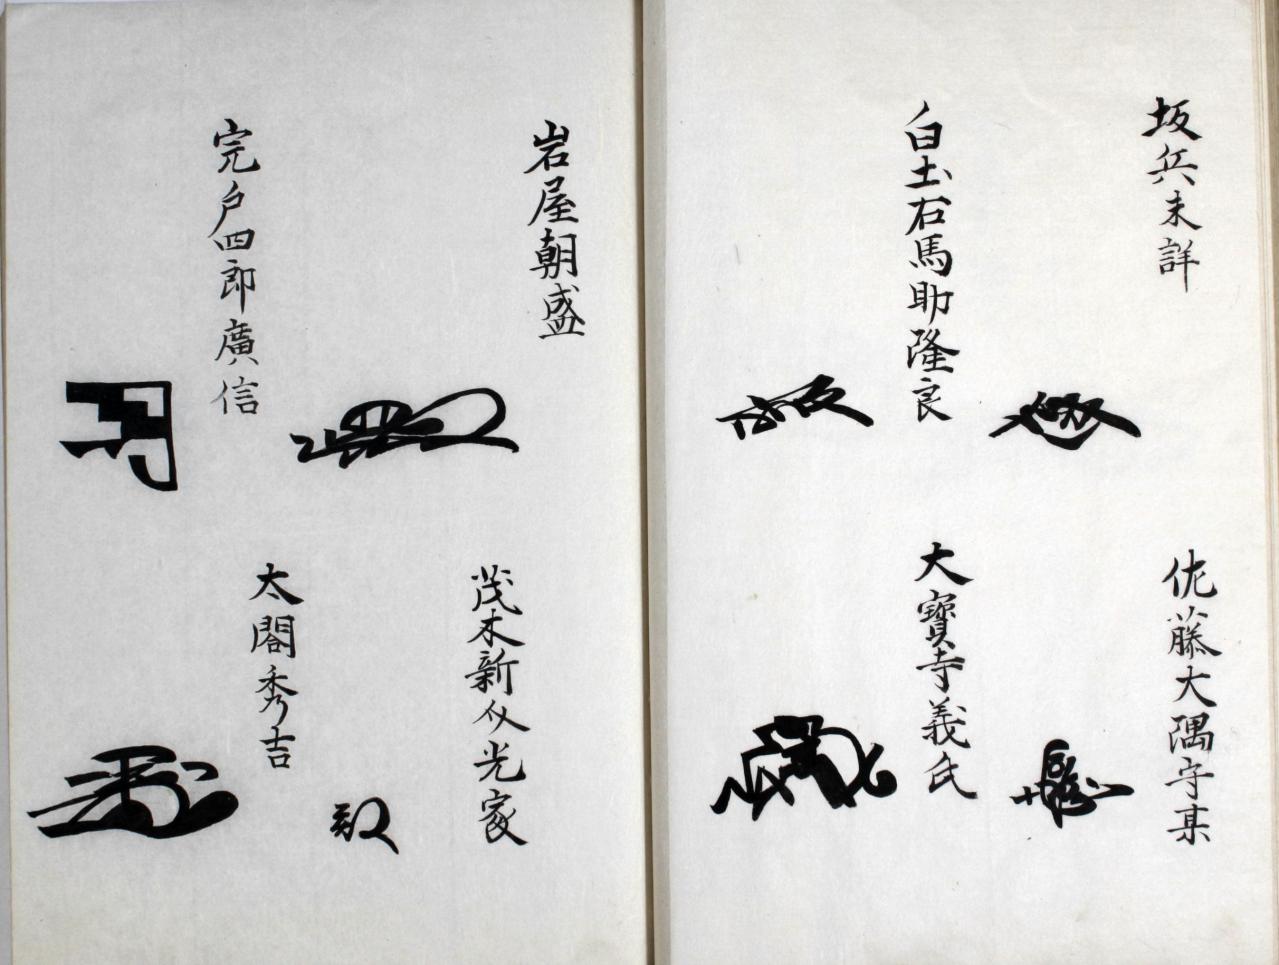 坂兵未詳
佐藤大隅守某
白土石馬助隆良
大寶寺義氏
岩屋朝盛
茂木新从光家
完戸四郎廣信
太閤秀吉